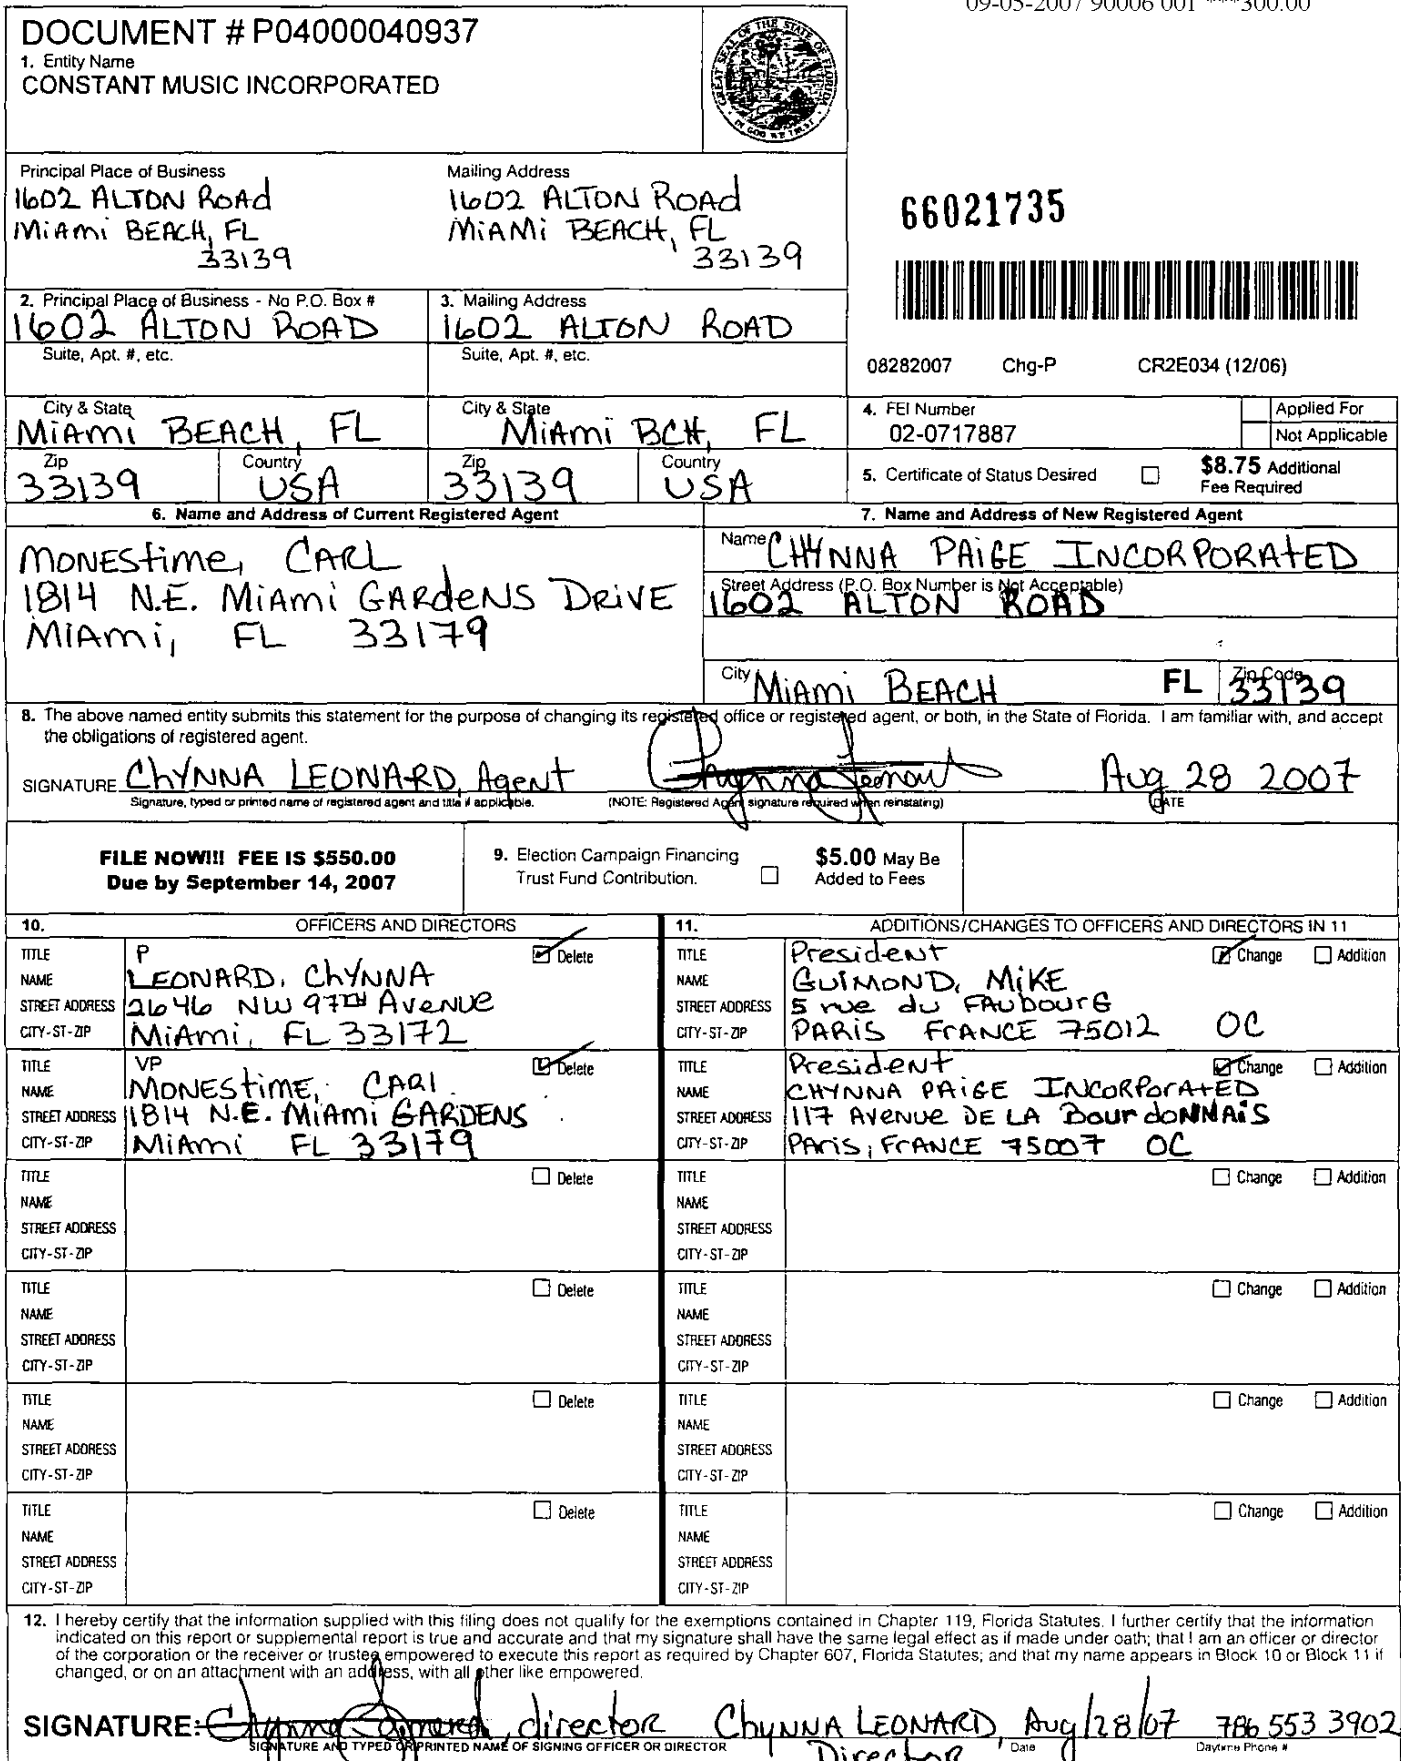 09-05-2007 90006 001 ***300.00
DOCUMENT # P04000040937
1. Entity Name
CONSTANT MUSIC INCORPORATED
GREAT SEAL OF THE STATE OF FLORIDA
IN GOD WE TRUST
Principal Place of Business
1602 ALTON ROAd
MiAmi BEACH, FL
33139
Mailing Address
1602 ALTON ROAd
MiAMi BEACH, FL
33139
66021735
2. Principal Place of Business - No P.O. Box #
1602 ALTON ROAD
Suite, Apt. #, etc.
3. Mailing Address
1602 ALTON ROAD
Suite, Apt. #, etc.
08282007 Chg-P CR2E034 (12/06)
City & State
MiAmi BEACH, FL
City & State
MiAmi BCH, FL
Zip
33139
Country
USA
Zip
33139
Country
USA
4. FEI Number
02-0717887
Applied For
Not Applicable
5. Certificate of Status Desired
$8.75 Additional
Fee Required
6. Name and Address of Current Registered Agent
MONEStime, CARL
1814 N.E. MiAmi GARdeNS DRiVE
MiAmi, FL 33179
7. Name and Address of New Registered Agent
Name CHYNNA PAiGE INCORPORAtED
Street Address (P.O. Box Number is Not Acceptable)
1602 ALTON ROAD
City MiAmi BEACH FL Zip Code 33139
8. The above named entity submits this statement for the purpose of changing its registered office or registered agent, or both, in the State of Florida. I am familiar with, and accept
the obligations of registered agent.
SIGNATURE ChYNNA LEONARD, Agent Chynna Leonard Aug 28 2007
Signature, typed or printed name of registered agent and title if applicable. (NOTE: Registered Agent signature required when reinstating) DATE
FILE NOW!!! FEE IS $550.00
Due by September 14, 2007
9. Election Campaign Financing
Trust Fund Contribution.
$5.00 May Be
Added to Fees
10. OFFICERS AND DIRECTORS
TITLE P Delete
NAME LEONARD, ChYNNA
STREET ADDRESS 2646 NW 97TH AVENUE
CITY-ST-ZIP MiAmi, FL 33172
TITLE VP Delete
NAME MONEStiME, CARl
STREET ADDRESS 1814 N.E. MiAmi GARDENS
CITY-ST-ZIP MiAmi FL 33179
TITLE Delete
NAME
STREET ADDRESS
CITY-ST-ZIP
TITLE Delete
NAME
STREET ADDRESS
CITY-ST-ZIP
TITLE Delete
NAME
STREET ADDRESS
CITY-ST-ZIP
TITLE Delete
NAME
STREET ADDRESS
CITY-ST-ZIP
11. ADDITIONS/CHANGES TO OFFICERS AND DIRECTORS IN 11
TITLE President Change Addition
NAME GUIMOND, MiKE
STREET ADDRESS 5 rue du FAUbourG
CITY-ST-ZIP PARiS FrANCE 75012 OC
TITLE President Change Addition
NAME CHYNNA PAiGE INCORPorAtED
STREET ADDRESS 117 AVENUE DE LA BourdoNNAiS
CITY-ST-ZIP PAris, FrANCE 75007 OC
TITLE Change Addition
NAME
STREET ADDRESS
CITY-ST-ZIP
TITLE Change Addition
NAME
STREET ADDRESS
CITY-ST-ZIP
TITLE Change Addition
NAME
STREET ADDRESS
CITY-ST-ZIP
TITLE Change Addition
NAME
STREET ADDRESS
CITY-ST-ZIP
12. I hereby certify that the information supplied with this filing does not qualify for the exemptions contained in Chapter 119, Florida Statutes. I further certify that the information
indicated on this report or supplemental report is true and accurate and that my signature shall have the same legal effect as if made under oath; that I am an officer or director
of the corporation or the receiver or trustee empowered to execute this report as required by Chapter 607, Florida Statutes; and that my name appears in Block 10 or Block 11 if
changed, or on an attachment with an address, with all other like empowered.
SIGNATURE: Chynna Leonard, director ChyNNA LEONARD, Aug/28/07 786 553 3902
Director
SIGNATURE AND TYPED OR PRINTED NAME OF SIGNING OFFICER OR DIRECTOR Date Daytime Phone #